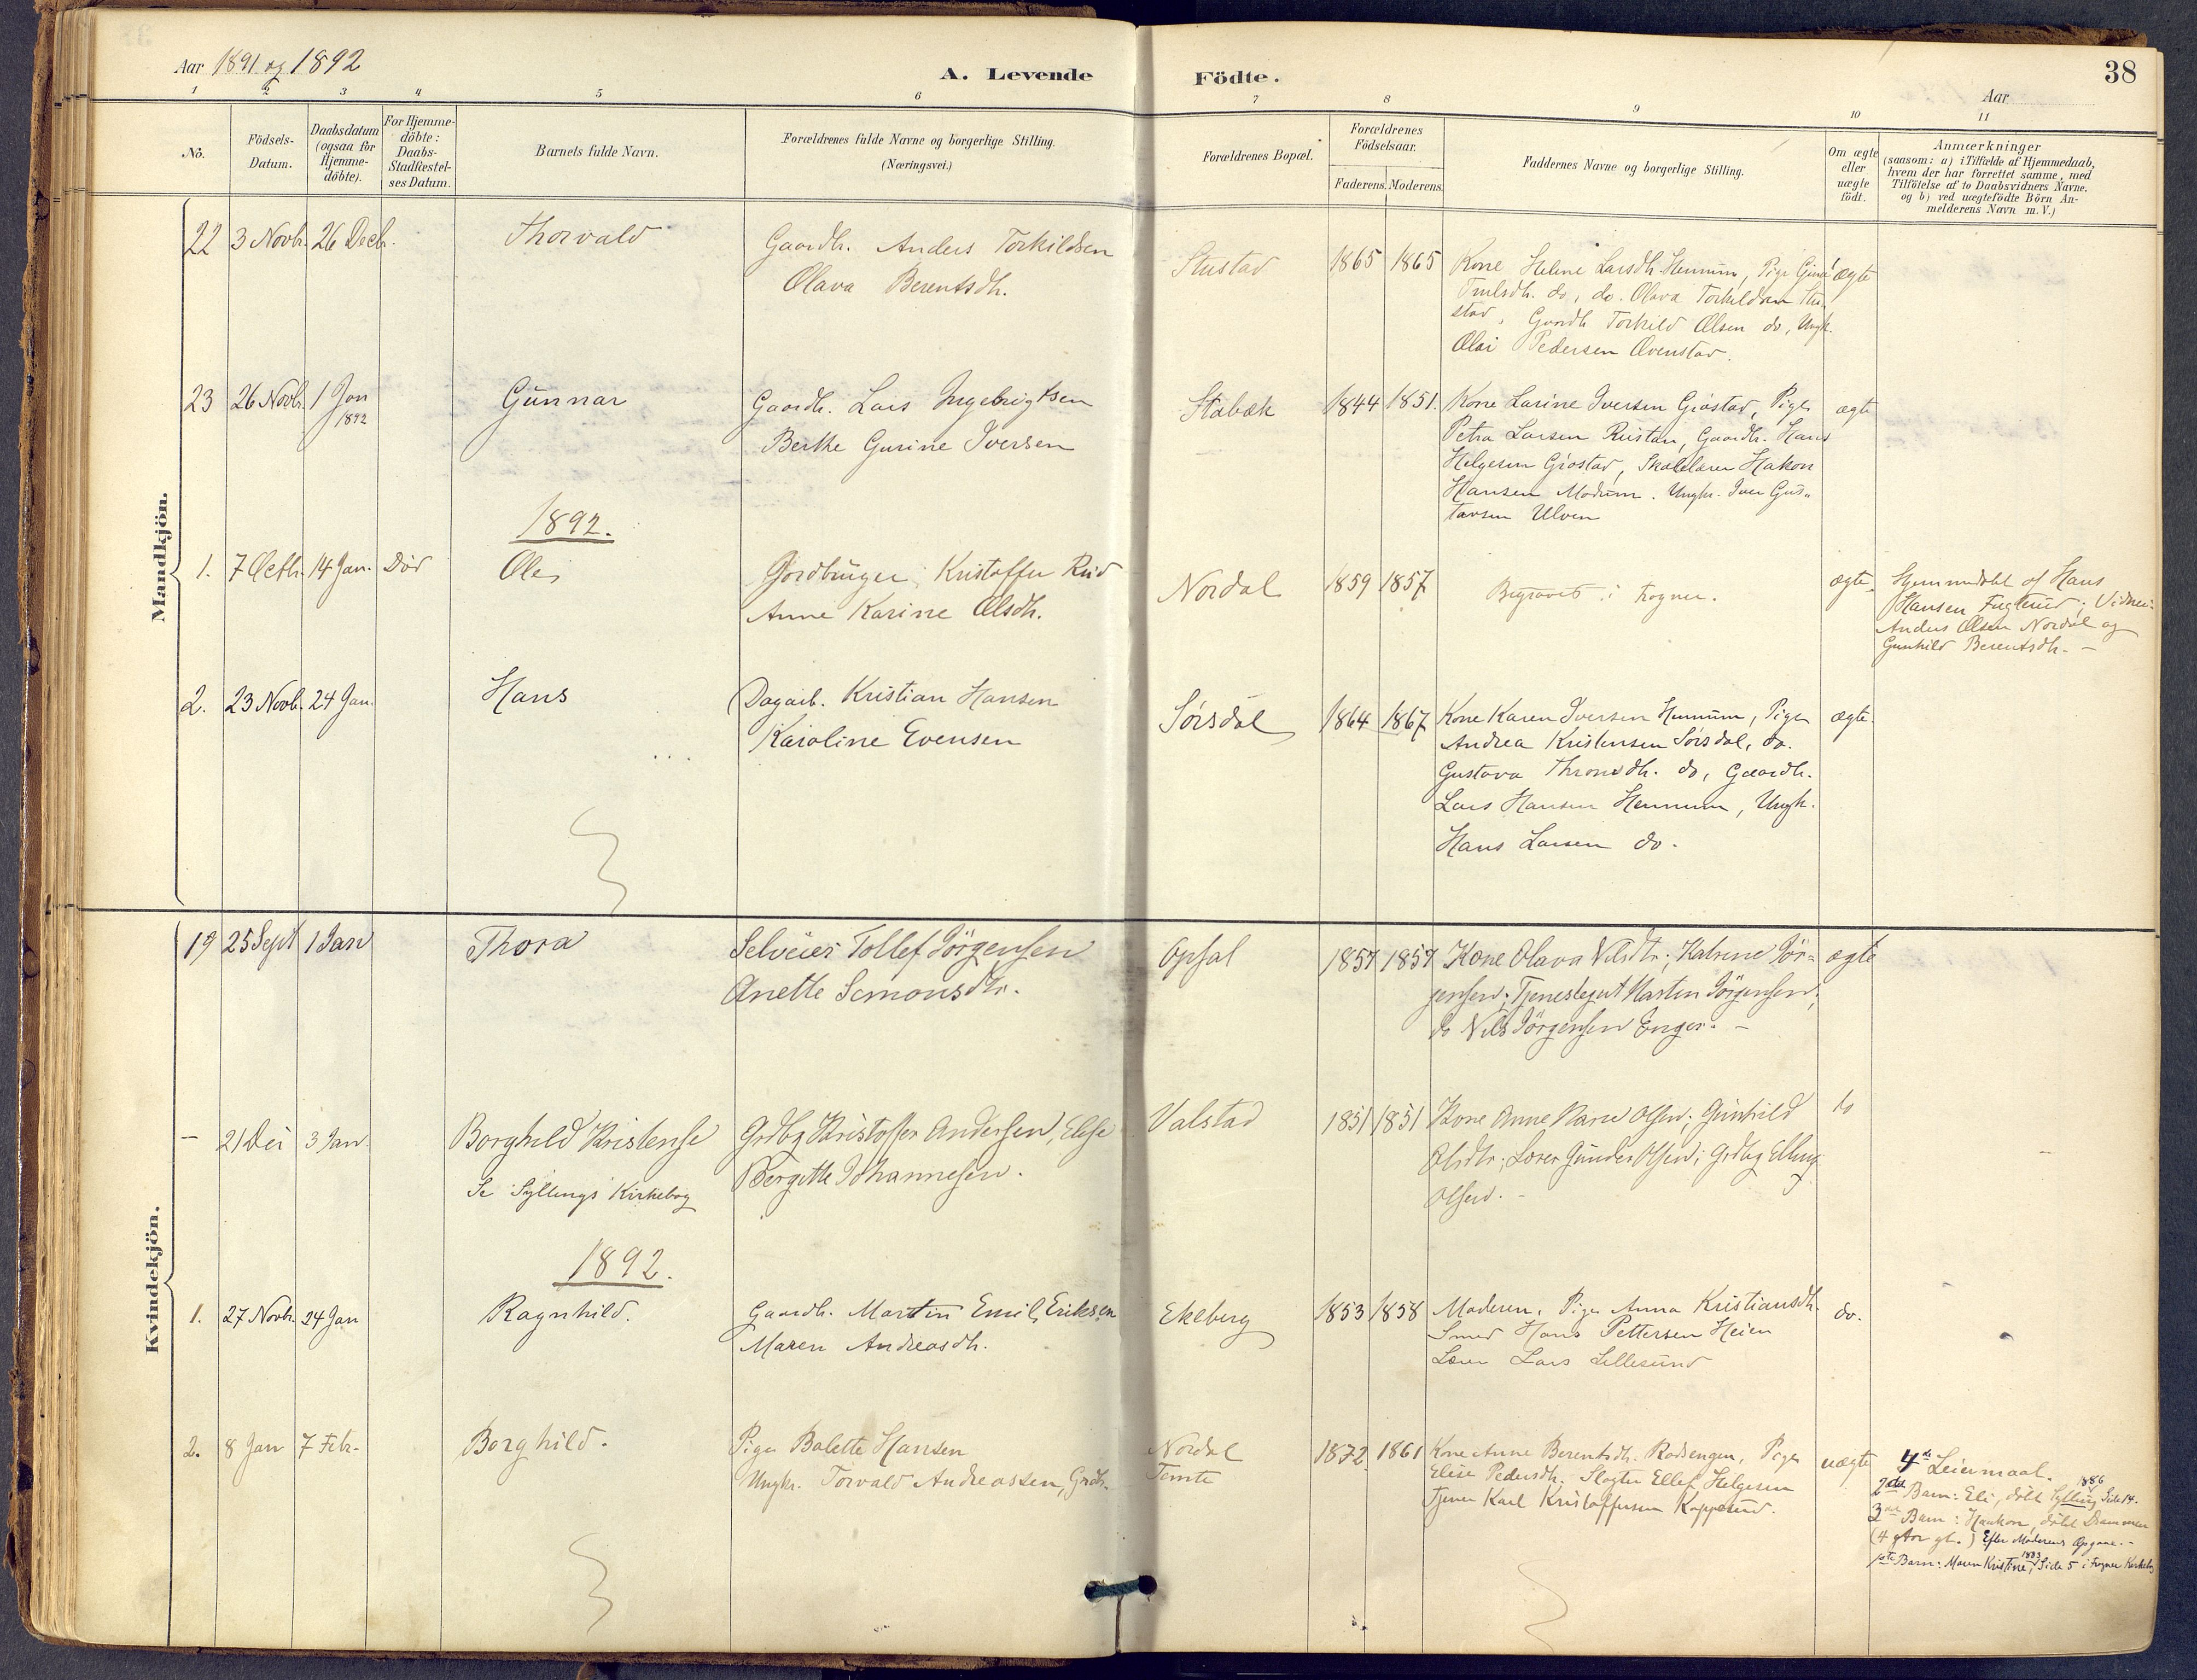 Aar 1891 og 1892
A. Levende Födte.
38
Aar
1 2 3 4 5 6 7 8 9 10 11
No.
Födsels-Datum.
Daabsdatum (ogsaa for Hjemme-döbte).
For Hjemme-döbte: Daabs-Stadfæstel-ses Datum.
Barnets fulde Navn.
Forældrenes fulde Navne og borgerlige Stilling.
(Næringsvei.)
Forældrenes Bopæl.
Forældrenes Födselsaar.
Faderens. Moderens.
Faddernes Navne og borgerlige Stilling.
Om ægte eller uægte födt.
Anmærkninger
(saasom: a) i Tilfælde af Hjemmedaab,
hvem der har forrettet samme, med
Tilföielse af to Daabsvidners Navne.
og b) ved uægtefödte Börn An-
melderens Navn m.V.)
Mandkjön.
22 3 Novb. 26 Decb. Thorvald
Gaardb. Anders Torkildsen
Olava Berentsdh.
Stustad 1865 1865
Kone Heline Larsdh. Hennum, Pige Gina
Trulsdh. do, do. Olava Torkildsen Stu-
stad, Gaardb Torkild Olsen do, Ungk.
Olai Pedersen Ovenstad.
ægte
23 26 Novb. 1 Jan 1892 Gunnar
Gaardb. Lars Ingebrigtsen
Berthe Gurine Iversen
Stabæk 1844 1851.
Kone Larine Iversen Gjøstad, Pige
Petra Larsen Rustan, Gaardb. Hans
Helgesen Gjøstad, Skolelærer Hakon
Hansen Modum. Ungkr. Iver Gus-
tavsen Ulven
ægte
1892.
1. 7 Octb. 14 Jan. Död Ole
Gardbruger Kristoffer Rud
Anne Karine Olsdh.
Nordal 1859 1857
Begravet i Frogner.
ægte
Hjemmedøbt af Hans
Hansen Fuglerud; Vidner:
Anders Olsen Nordal og
Gunhild Berentsdh. –
2. 23 Novb. 24 Jan. Hans
Dagarb. Kristian Hansen
Karoline Evensen
Sørsdal 1864 1867
Kone Karen Iversen Hennum, Pige
Andrea Kristensen Sørsdal, do.
Gustava Thronsdh. do, Gaardb.
Lars Hansen Hennum, Ungk.
Hans Larsen do.
ægte.
Kvindekjön.
19 25 Sept 1 Jan Thora
Selveier Tollef Jörgensen
Anette Simonsdtr.
Opsal 1857 1857
Kone Olava Nilsdtr; Katrine Jör-
gensen; Tjenestegut Martin Jörgensen;
do Nils Jörgensen Enger. –
ægte
– 21 Dei 3 Jan. Borghild Kristense
Se Syllings Kirkebog
Grdbg Kristoffer Andersen, Elise
Bergitte Johannesen.
Valstad 1851 1851
Kone Anne Marie Olsen; Gunhild
Olsdtr; Lærer Gunder Olsen; Grdbg Elling
Olsen. –
do
1892.
1. 27 Novb. 24 Jan Ragnhild.
Gaardb. Martin Emil Eriksen
Maren Andreasdh.
Ekeberg 1853 1858
Moderen, Pige Anna Kristiansdh.
Smed Hans Pettersen Heien
Lærer Lars Lillesund
do.
2. 8 Jan 7 Febr. Borghild.
Pige Bolette Hansen
Ungkr. Torvald Andreassen, Grdb.
Nordal
Temte
1872 1861
Kone Anne Berentsdh. Rødsengen, Pige
Elise Pedersdh. Slagter Ellef Helgesen
Tjener Karl Kristoffersen Kopperud.
uægte
4de Leiermaal.
2det Barn: Eli, døbt Sylling 1886 Side 14.
3de Barn: Haakon, døbt Drammen
(4 Aar gl.) Efter Moderens Opgave. –
1ste Barn: Maren Kristine, 1883 Side 5 i Frogner Kirkebog